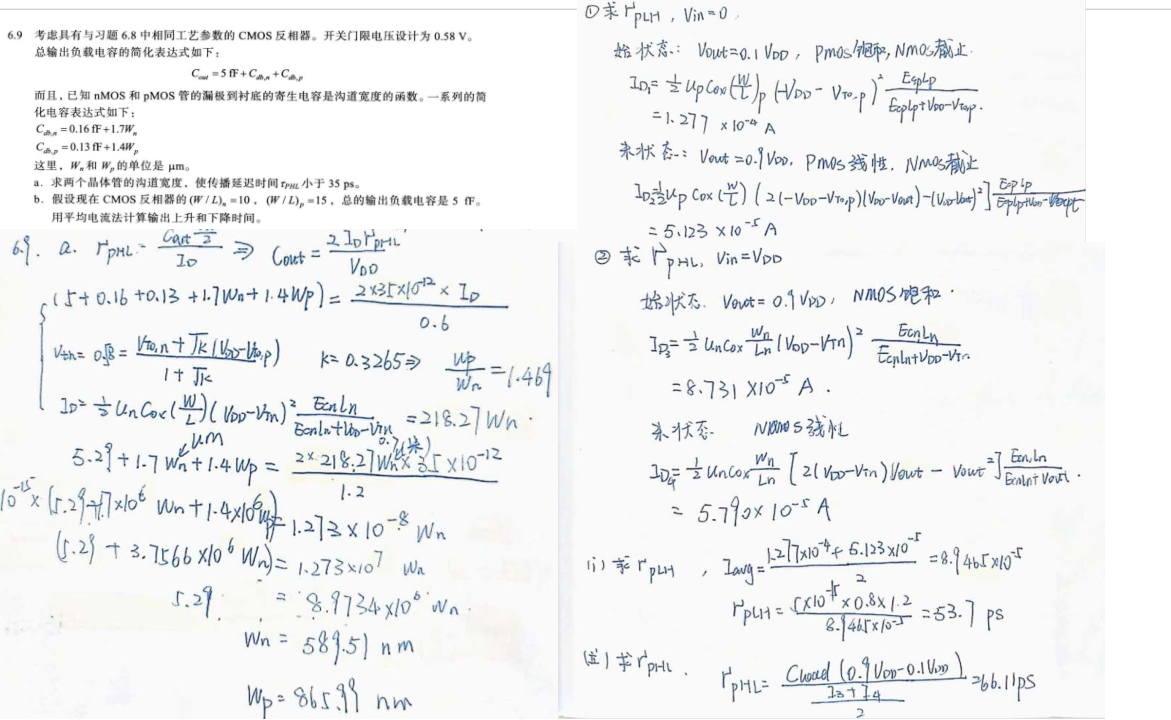 6.9 考虑具有与习题 6.8 中相同工艺参数的 CMOS 反相器。开关门限电压设计为 0.58 V。
总输出负载电容的简化表达式如下：
C_out = 5 fF + C_db,n + C_db,p
而且，已知 nMOS 和 pMOS 管的漏极到衬底的寄生电容是沟道宽度的函数。一系列的简
化电容表达式如下：
C_db,n = 0.16 fF + 1.7W_n
C_db,p = 0.13 fF + 1.4W_p
这里，W_n 和 W_p 的单位是 μm。
a. 求两个晶体管的沟道宽度，使传播延迟时间 τ_PHL 小于 35 ps。
b. 假设现在 CMOS 反相器的 (W / L)_n = 10，(W / L)_p = 15，总的输出负载电容是 5 fF。
用平均电流法计算输出上升和下降时间。
6.9. a. τ_PHL = / I_D ⇒ Cout = 2 I_D τ_PHL / V_DD
(5+0.16+0.13+1.7Wn+1.4Wp) = 2×35×10^-12 × I_D / 0.6
Vth = = V_T0,n + √K (V_DD - V_T0,p) / 1+√K K= 0.3265 ⇒ Wp / Wn = 1.469
I_D = 1/2 Un Cox (W/L) (V_DD - V_Tn)^2 EcnLn / EcnLn+V_DD-V_Tn = 218.27 Wn
μm
5.29 + 1.7 Wn + 1.4 Wp = 2× 218.27 Wn × 35 ×10^-12 / 1.2
10^-15 × (5.29+1.7×10^6 Wn + 1.4×10^6 Wp) = 1.273 × 10^-8 Wn
(5.29 + 3.7566 ×10^6 Wn) = 1.273×10^7 Wn
5.29 = 8.9734×10^6 Wn.
Wn = 589.51 nm
Wp = 865.99 nm
① 求 τ_PLH , Vin = 0 .
始状态: Vout = 0.1 V_DD , PMOS 饱和, NMOS 截止.
I_D1 = 1/2 Up Cox (W/L)_p (-V_DD - V_T0,p)^2 EcpLp / EcpLp+V_DD-V_T0,p.
= 1.277 ×10^-4 A
末状态: Vout = 0.9 V_DD, PMOS 线性, NMOS 截止
I_D2 = 1/2 Up Cox (W/L) [2(-V_DD-V_T0,p)(V_DD-Vout)-(V_DD-Vout)^2] EcpLp /
= 5.123 ×10^-5 A
② 求 τ_PHL, Vin = V_DD
始状态. Vout = 0.9 V_DD, NMOS 饱和.
I_D3 = 1/2 Un Cox Wn/Ln (V_DD-V_Tn)^2 EcnLn / EcnLn+V_DD-V_Tn
= 8.731 ×10^-5 A .
末状态. NMOS 线性
I_D4 = 1/2 Un Cox Wn/Ln [2(V_DD-V_Tn)Vout - Vout^2] EcnLn / EcnLn+Vout .
= 5.790× 10^-5 A
(i) 求 τ_PLH , Iavg = 1.277×10^-4 + 5.123×10^-5 / 2 = 8.9465×10^-5
τ_PLH = 5×10^-15 ×0.8×1.2 / 8.9465×10^-5 = 53.7 ps
(ii) 求 τ_PHL .
τ_PHL = Cload (0.9V_DD-0.1V_DD) / I3+I4 / 2 = 66.11ps